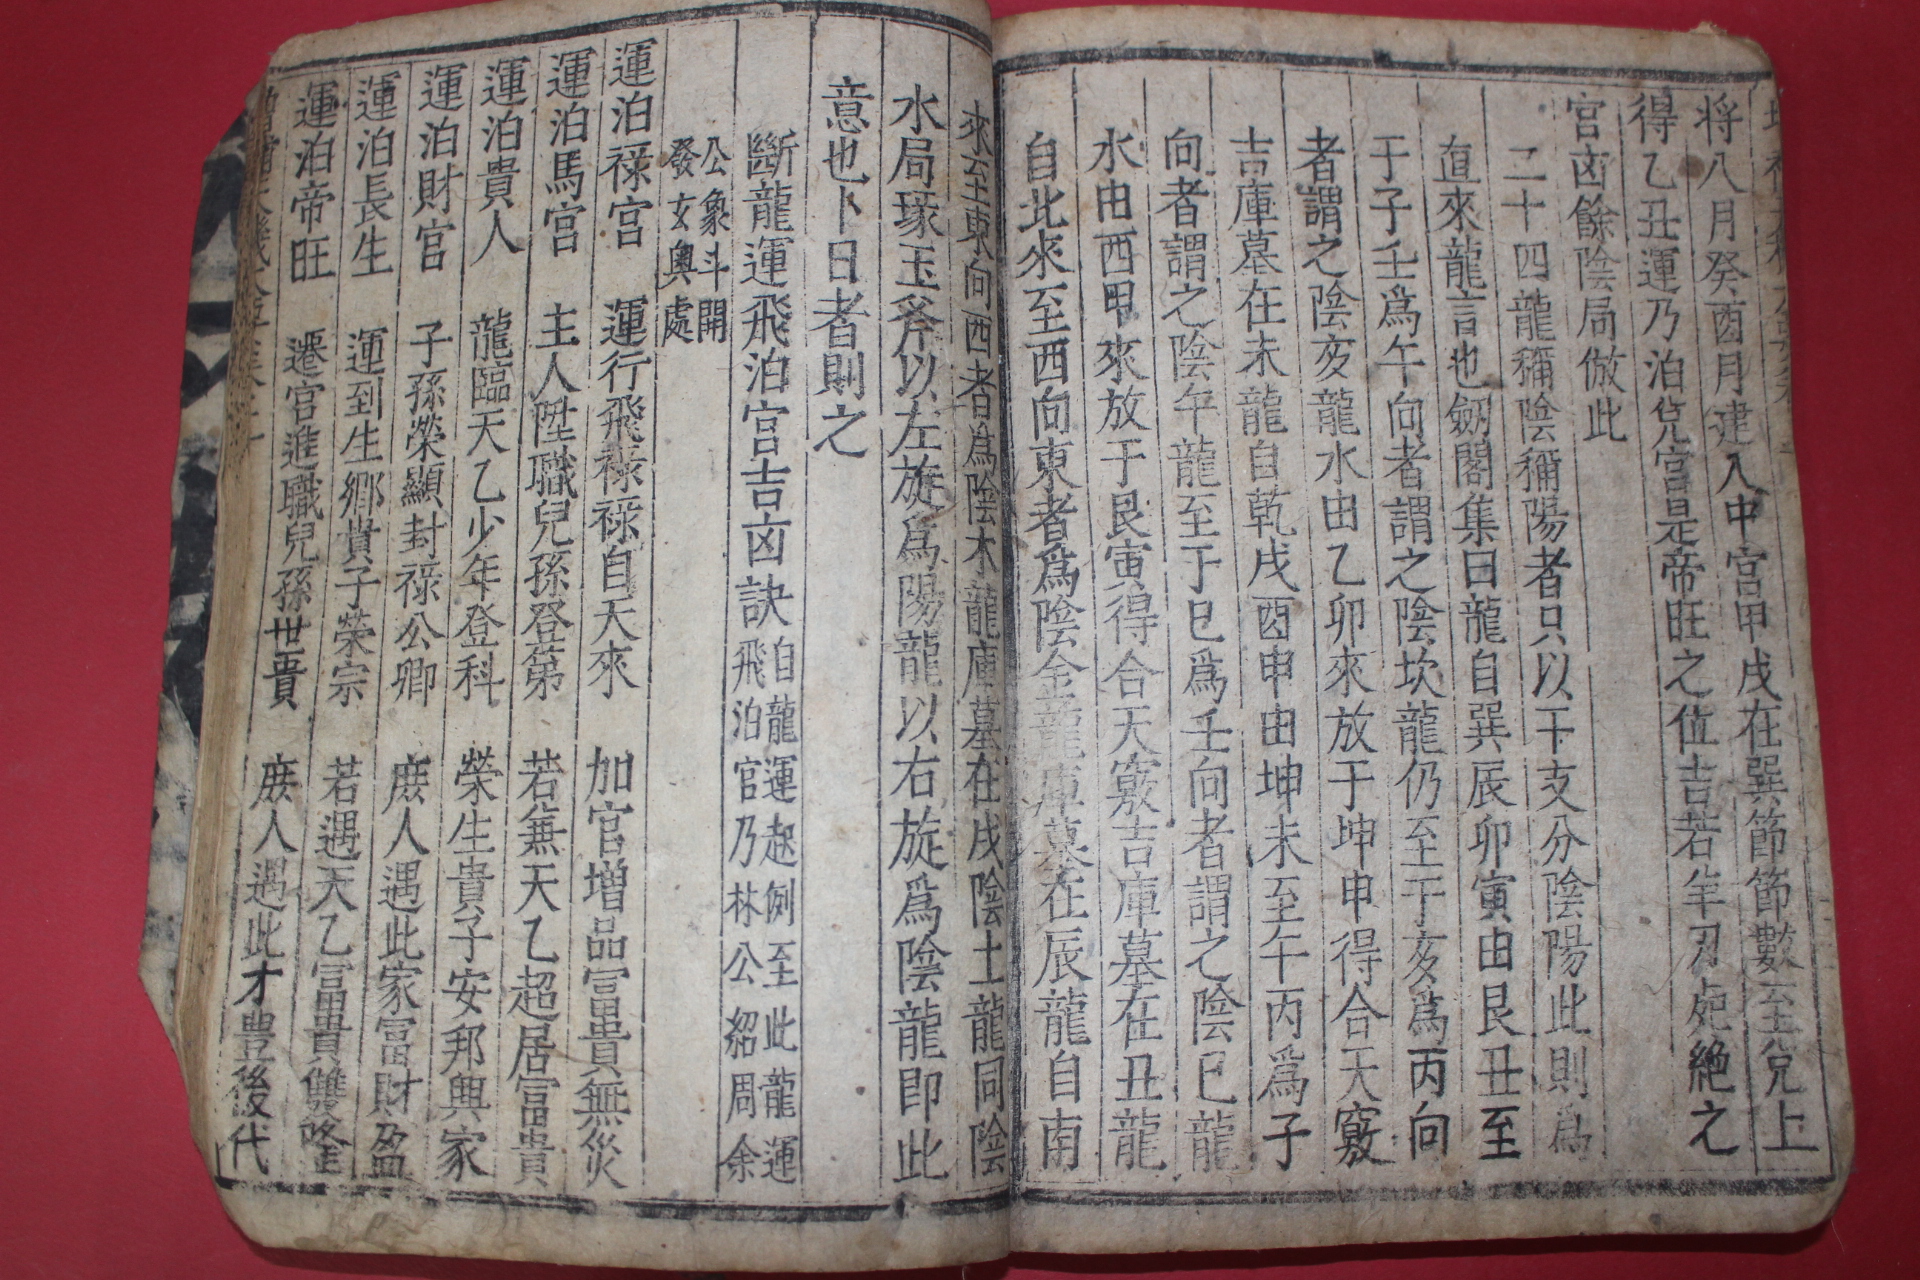 将八月癸酉月建入中宮甲戌在巽節節數至兌上
得乙丑運乃泊兌宮是帝旺之位吉若羊刃死絶之
宮凶餘陰局倣此
二十四龍稱陰稱陽者只以干支分陰陽此則爲
直來龍言也劒閣集曰龍自巽辰卯寅由艮丑至
于子壬爲午向者謂之陰坎龍仍至于亥爲丙向
者謂之陰亥龍水由乙卯來放于坤申得合天竅
吉庫墓在未龍自乾戌酉申由坤未至午丙爲子
向者謂之陰午龍至于巳爲壬向者謂之陰巳龍
水由酉甲來放于艮寅得合天竅吉庫墓在丑龍
自北來至西向東者爲陰金龍庫墓在辰龍自南
來至東向西者爲陰木龍庫墓在戌陰土龍同陰
水局琢玉斧以左旋爲陽龍以右旋爲陰龍即此
意也卜日者則之
斷龍運飛泊宮吉凶訣 自龍運起例至此龍運
飛泊官乃林公紹周余
公象斗開
發玄奧處
運泊祿宮 運行飛祿祿自天來 加官增品富貴無災
運泊馬宮 主人陞職兒孫登第 若無天乙超居富貴
運泊貴人 龍臨天乙少年登科 榮生貴子安邦興家
運泊財宮 子孫榮顯封祿公卿 庶人遇此家富財盈
運泊長生 運到生鄉貴子榮宗 若遇天乙富貴雙隆
運泊帝旺 遷宮進職兒孫世貴 庶人遇此才豊後代